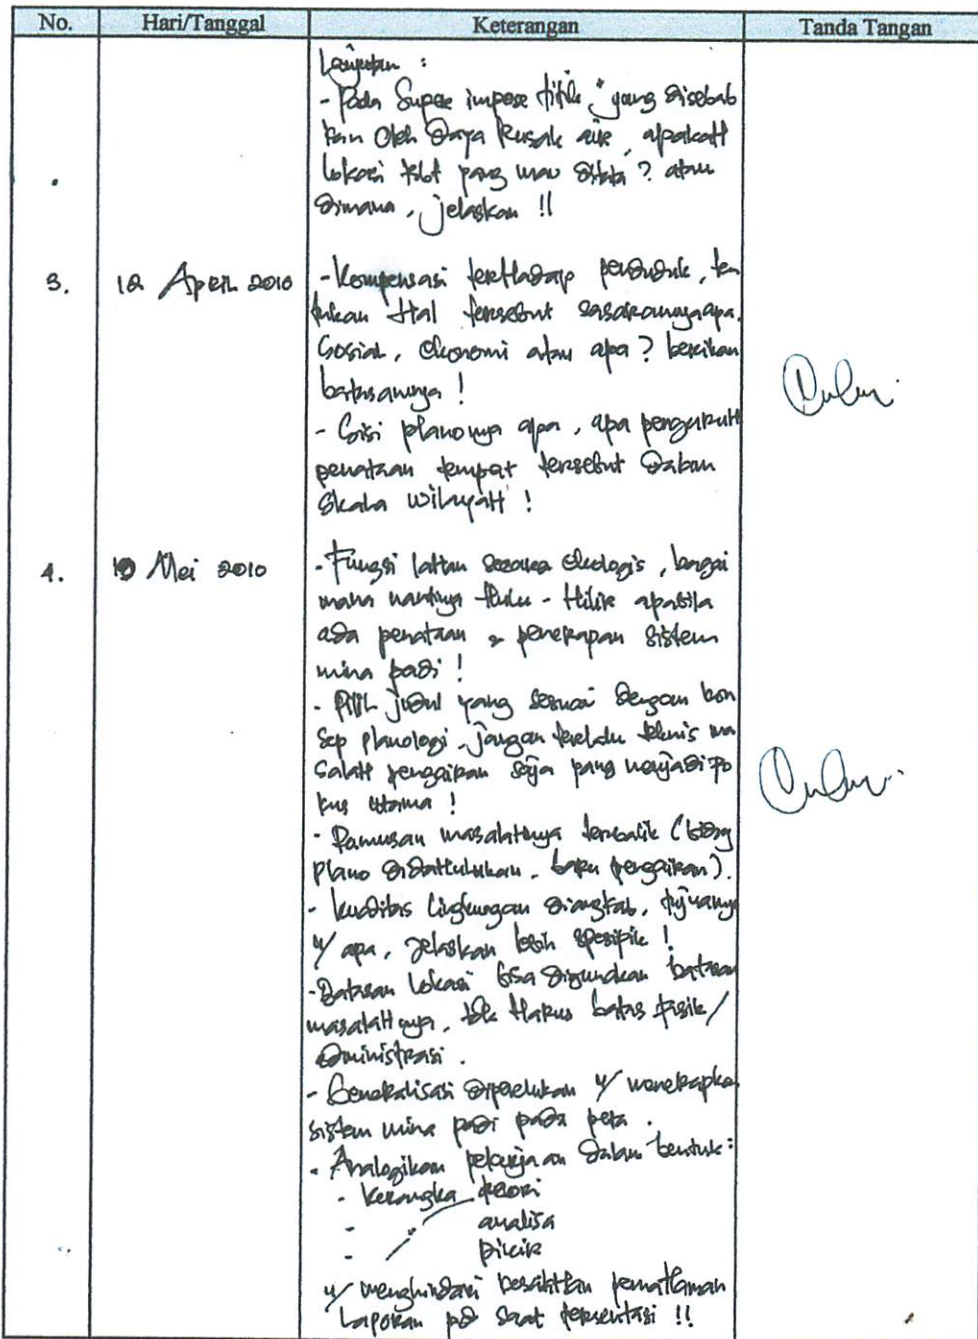 No. Hari/Tanggal Keterangan Tanda Tangan
Lanjutan :
- Pada Super impose titik", yang disebab
kan oleh Daya Rusak air, apakah
lokasi tsbt yang mau ditata ? atau
dimana, jelaskan !!
3. 12 April 2010 - Kompensasi terhadap penduduk, ten
tukan Hal tersebut sasarannya apa.
Sosial, ekonomi atau apa ? berikan
batasannya !
- Sisi planonya apa, apa pengaruh
penataan tempat tersebut dalam
skala wilayah !
4. 10 Mei 2010 - Fungsi lahan secara ekologis, bagai
mana nantinya Hulu - Hilir apabila
ada penataan & penerapan sistem
mina padi !
- Pilih judul yang sesuai dengan kon
sep planologi, jangan terlalu teknis ma
salah pengairan saja yang menjadi po
kus utama !
- Rumusan masalahnya terbalik (bidang
plano didahulukan, baru pengairan).
- kualitas lingkungan diangkat, tujuannya
u/ apa, jelaskan lebih spesipik !
- Batasan lokasi bisa digunakan batasan
masalahnya, tdk Harus batas fisik/
administrasi.
- Generalisasi diperlukan u/ menerapkan
sistem mina padi pada peta.
- Analogikan pekerjaan dalam bentuk :
- kerangka teori
- " analisa
- " pikir
u/ menghindari kesalahan pemahaman
Laporan pd saat persentasi !!